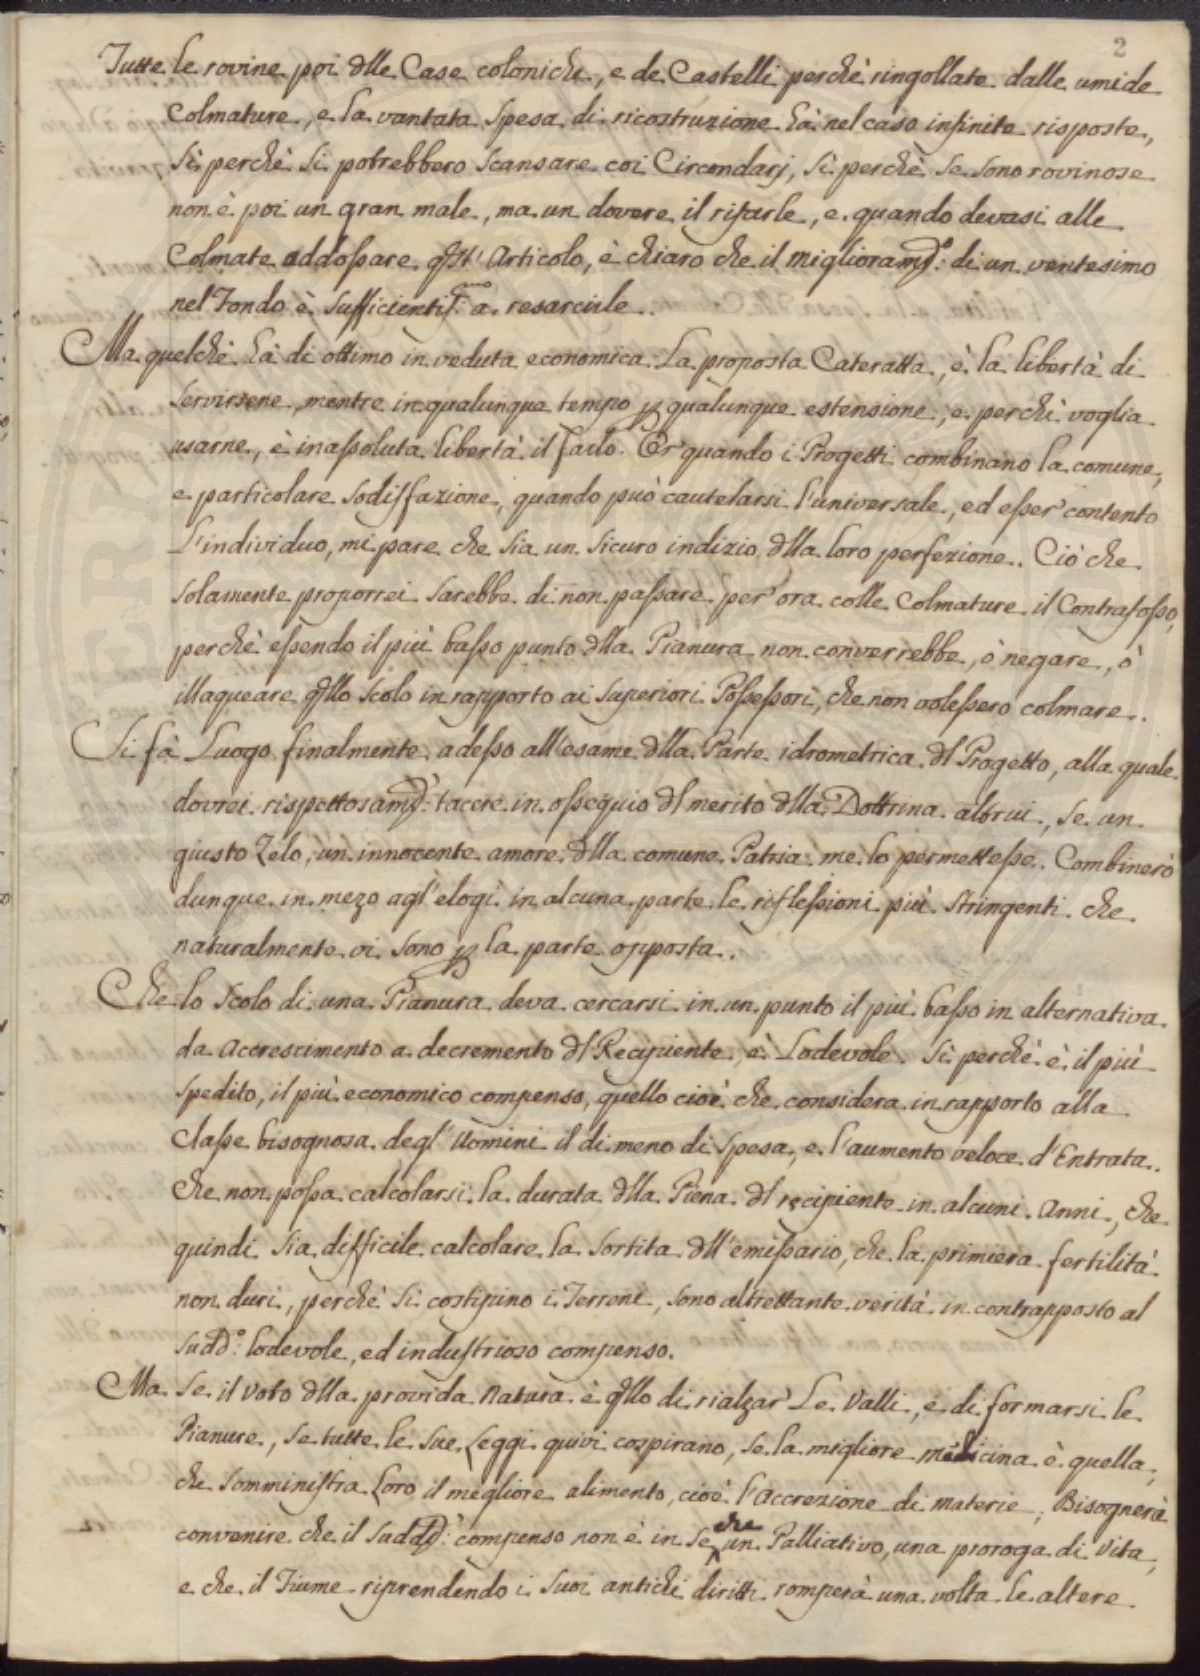 2
Tutte le rovine poi dlle Case coloniche, e de Castelli perchè ringollate dalle umide
Colmature, e la vantata Spesa di ricostruzione hà nel caso infinite risposte,
Sì perchè Si potrebbero Scansare coi Circondarj, Sì perchè Se Sono rovinose
non è poi un gran male, ma un dovere il rifarle, e quando devasi alle
Colmate addoſsare qſt' Articolo, è chiaro che il miglioramo: di un ventesimo
nel Fondo è Sufficientiſ: a resarcirle.
Ma quelchè hà di ottimo in veduta economica La proposta Cateratta, è la libertà di
Servirsene, mentre in qualunque tempo p qualunque estensione, e perchi voglia
usarne, è in aſsoluta libertà il farlo. Or quando i Progetti combinano la comune,
e particolare Sodisfazione, quando può cautelarsi l'universale, ed eſser contento
L'individuo, mi pare che Sia un Sicuro indizio dlla loro perfezione. Ciò che
Solamente proporrei Sarebbe di non paſsare per ora colle Colmature il Contrafoſso,
perchè eſsendo il più baſso punto dlla Pianura non converrebbe, ò negare, ò
illaqueare qllo Scolo in rapporto ai Superiori Poſseſsori, che non voleſsero colmare.
Si fà Luogo finalmente adeſso all'esame dlla Parte idrometrica dl Progetto, alla quale
dovrei rispettosamo: tacere in oſsequio dl merito dlla Dottrina altrui, Se un
giusto Zelo, un innocente amore dlla comune Patria me lo permetteſse. Combinerò
dunque in mezo agl'elogi in alcuna parte le rifleſsioni più Stringenti che
naturalmente vi Sono p la parte opposta.
Che lo Scolo di una Pianura deva cercarsi in un punto il più baſso in alternativa
da accrescimento a decremento dl Recipiente, è Lodevole. Sì perchè è il più
Spedito, il più economico compenso, quello cioè che considera in rapporto alla
Claſse bisognosa degl'Uomini il di meno di Spesa, e l'aumento veloce d'Entrata.
Che non poſsa calcolarsi la durata dlla Piena dl recipiente in alcuni Anni, che
quindi Sia difficile calcolare la Sortita dll'emiſsario, che la primiera fertilità
non duri, perchè Si costipino i Terreni, Sono altrettante verità in contrapposto al
Sudd°: lodevole, ed induſtrioso compenso.
Ma Se il Voto dlla provida Natura è qllo di rialzar Le Valli, e di formarsi le
Pianure, Se tutte le Sue Leggi quivi cospirano, Se la migliore medicina è quella,
che Somminiſtra Loro il megliore alimento, cioè l'Accrezione di materie; Bisognerà
convenire che il Sudd°: compenso non è in Se che un Palliativo, una proroga di Vita,
e che il Fiume riprendendo i Suoi antichi diritti romperà una volta le altere